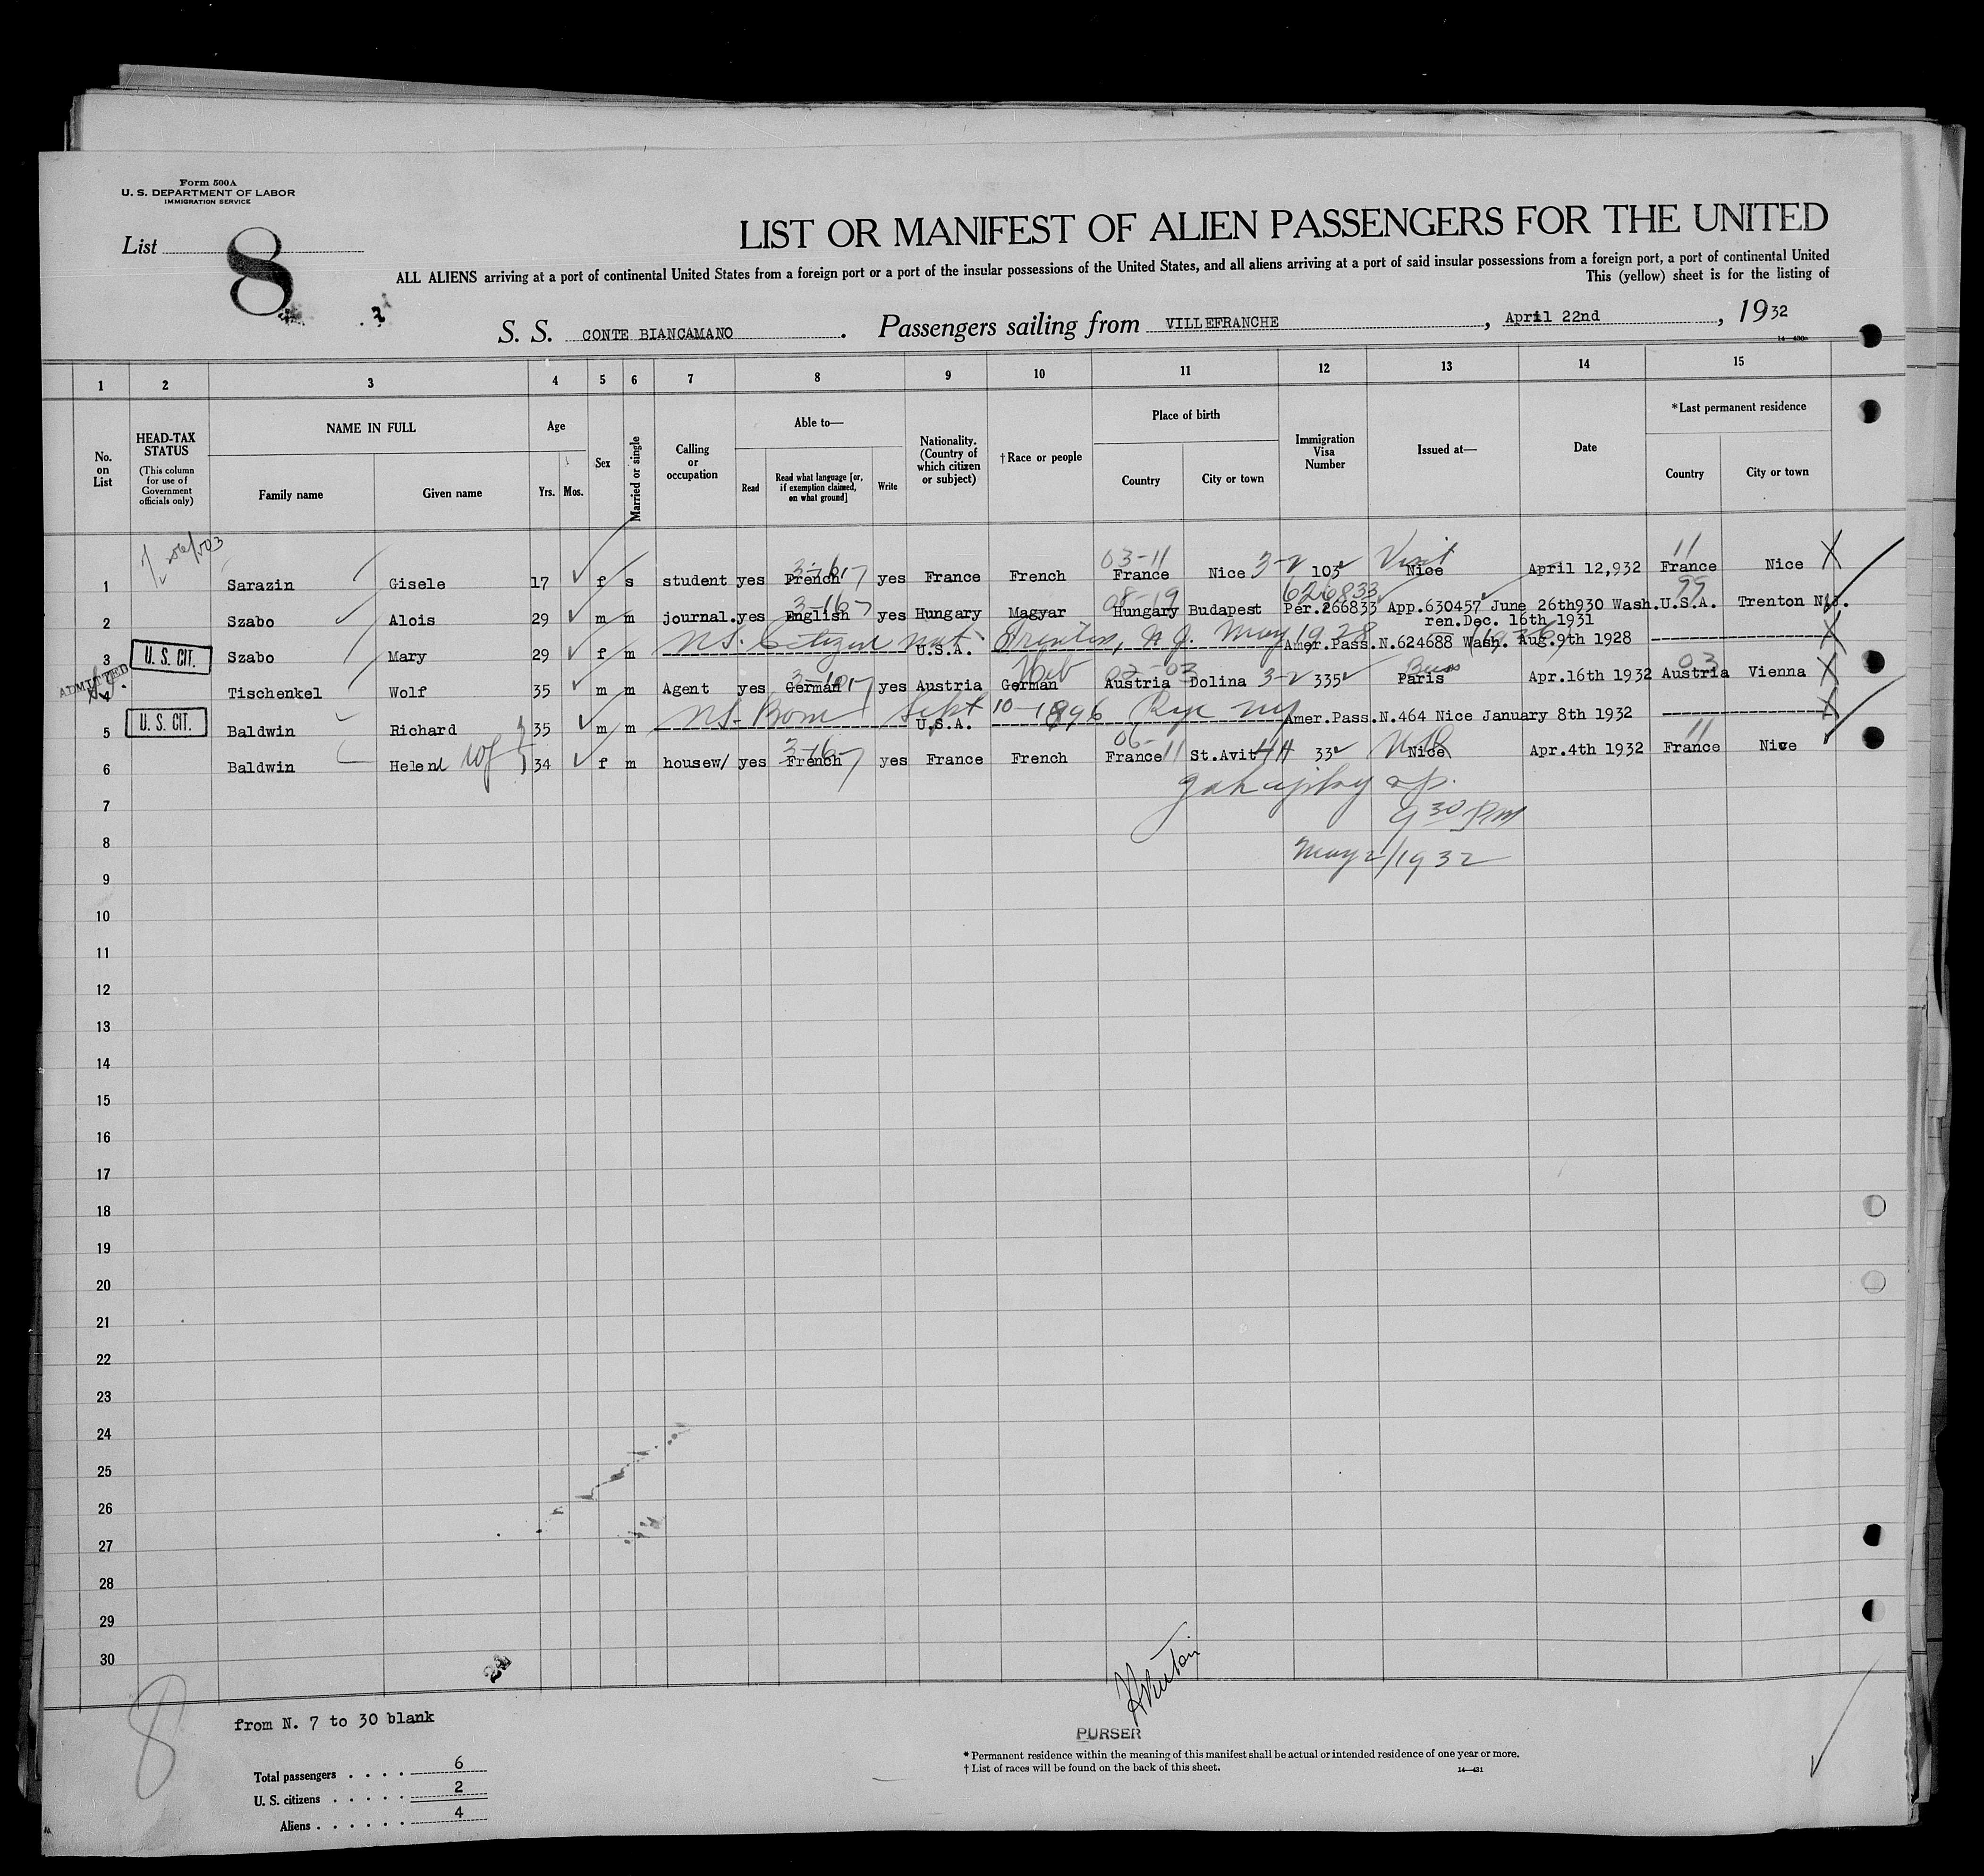 Form 500A
U. S. DEPARTMENT OF LABOR
IMMIGRATION SERVICE
List 8
LIST OR MANIFEST OF ALIEN PASSENGERS FOR THE UNITED
ALL ALIENS arriving at a port of continental United States from a foreign port or a port of the insular possessions of the United States, and all aliens arriving at a port of said insular possessions from a foreign port, a port of continental United
This (yellow) sheet is for the listing of
S. S. CONTE BIANCAMANO. Passengers sailing from VILLEFRANCHE, April 22nd, 1932
1 2 3 4 5 6 7 8 9 10 11 12 13 14 15
No. on List
HEAD-TAX STATUS
(This column for use of Government officials only)
NAME IN FULL
Family name Given name
Age
Yrs. Mos.
Sex
Married or single
Calling or occupation
Able to—
Read
Read what language [or, if exemption claimed, on what ground]
Write
Nationality. (Country of which citizen or subject)
†Race or people
Place of birth
Country City or town
Immigration Visa Number
Issued at—
Date
*Last permanent residence
Country City or town
03-11 Visit 11
1 Sarazin Gisele 17 f s student yes French yes France French France Nice 3-2 103 Nice April 12,932 France Nice X
3-16 08-19 626833 99
2 Szabo Alois 29 m m journal. yes English yes Hungary Magyar Hungary Budapest Per.266833 App.630457 June 26th930 Wash. U.S.A. Trenton N.J.
ren.Dec. 16th 1931
Citizen nat. Trenton, N.J. May 1928
3 U. S. CIT. Szabo Mary 29 f m U.S.A. Amer.Pass.N.624688 Wash. Aug.9th 1928 X
ADMITTED
Heb 03
4 Tischenkel Wolf 35 m m Agent yes German yes Austria German Austria Dolina 3-2 335 Paris Apr.16th 1932 Austria Vienna X
Born Sept 10-1896 Rye NY
5 U. S. CIT. Baldwin Richard 35 m m U.S.A. Amer.Pass.N.464 Nice January 8th 1932 X
3-16 06 11
6 Baldwin Helend wf 34 f m housew/ yes French yes France French France 11 St.Avit 33 Nice Apr.4th 1932 France Nice
7
9 30 PM
8
May 2/1932
9
10
11
12
13
14
15
16
17
18
19
20
21
22
23
24
25
26
27
28
29
30
8
from N. 7 to 30 blank
PURSER
Total passengers . . . . 6
U. S. citizens . . . . . 2
Aliens . . . . . . 4
* Permanent residence within the meaning of this manifest shall be actual or intended residence of one year or more.
† List of races will be found on the back of this sheet.
14—431